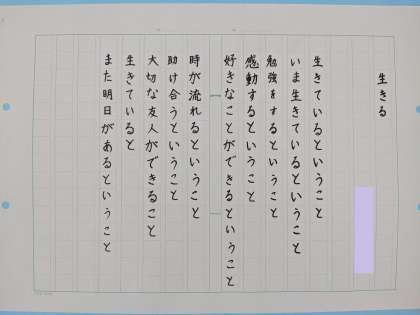 生きる
生きているということ
いま生きているということ
勉強をするということ
感動するということ
好きなことができるということ
時が流れるということ
助け合うということ
大切な友人ができること
生きていると
また明日があるということ